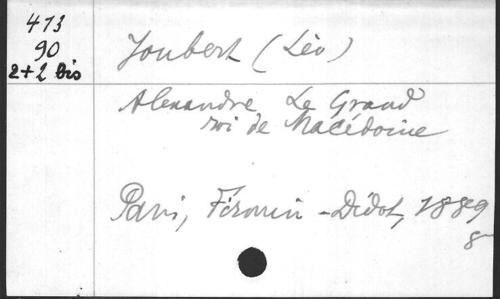 473
90
2+2 Bis
Joubert (Léo)
Alexandre Le Grand
roi de Macédoine
Paris, Firmin-Didot, 1889
8°